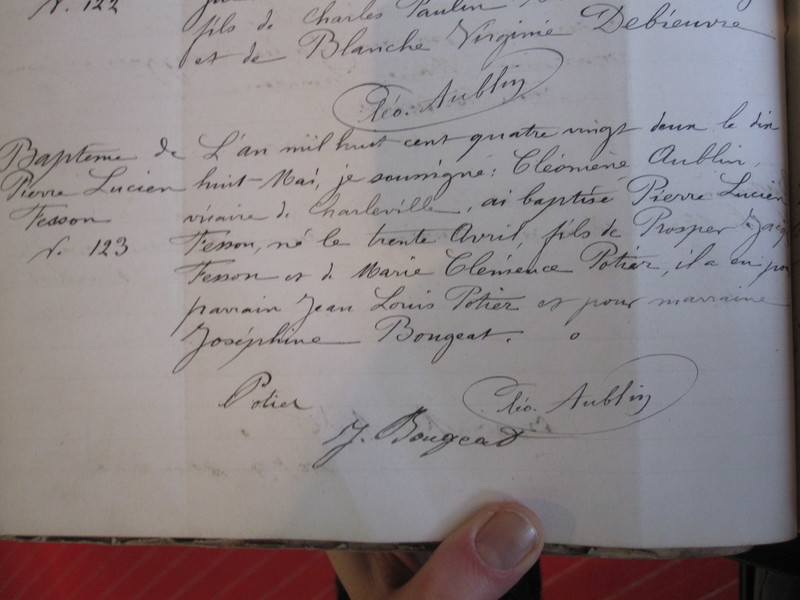 N. 122
fils de Charles Paulin
et de Blanche Virginie Debieuvre
Cléo. Aublin
Baptême de
Pierre Lucien
Fesson
N. 123
L'an mil huit cent quatre vingt deux le dix
huit Mai, je soussigné: Cléomène Aublin,
vicaire de Charleville, ai baptisé Pierre Lucien
Fesson, né le trente Avril, fils de Prosper
Fesson et de Marie Clémence Potier, il a eu pour
parrain Jean Louis Potier et pour marraine
Joséphine Bougeat.
Potier
Cléo. Aublin
J. Bougeat